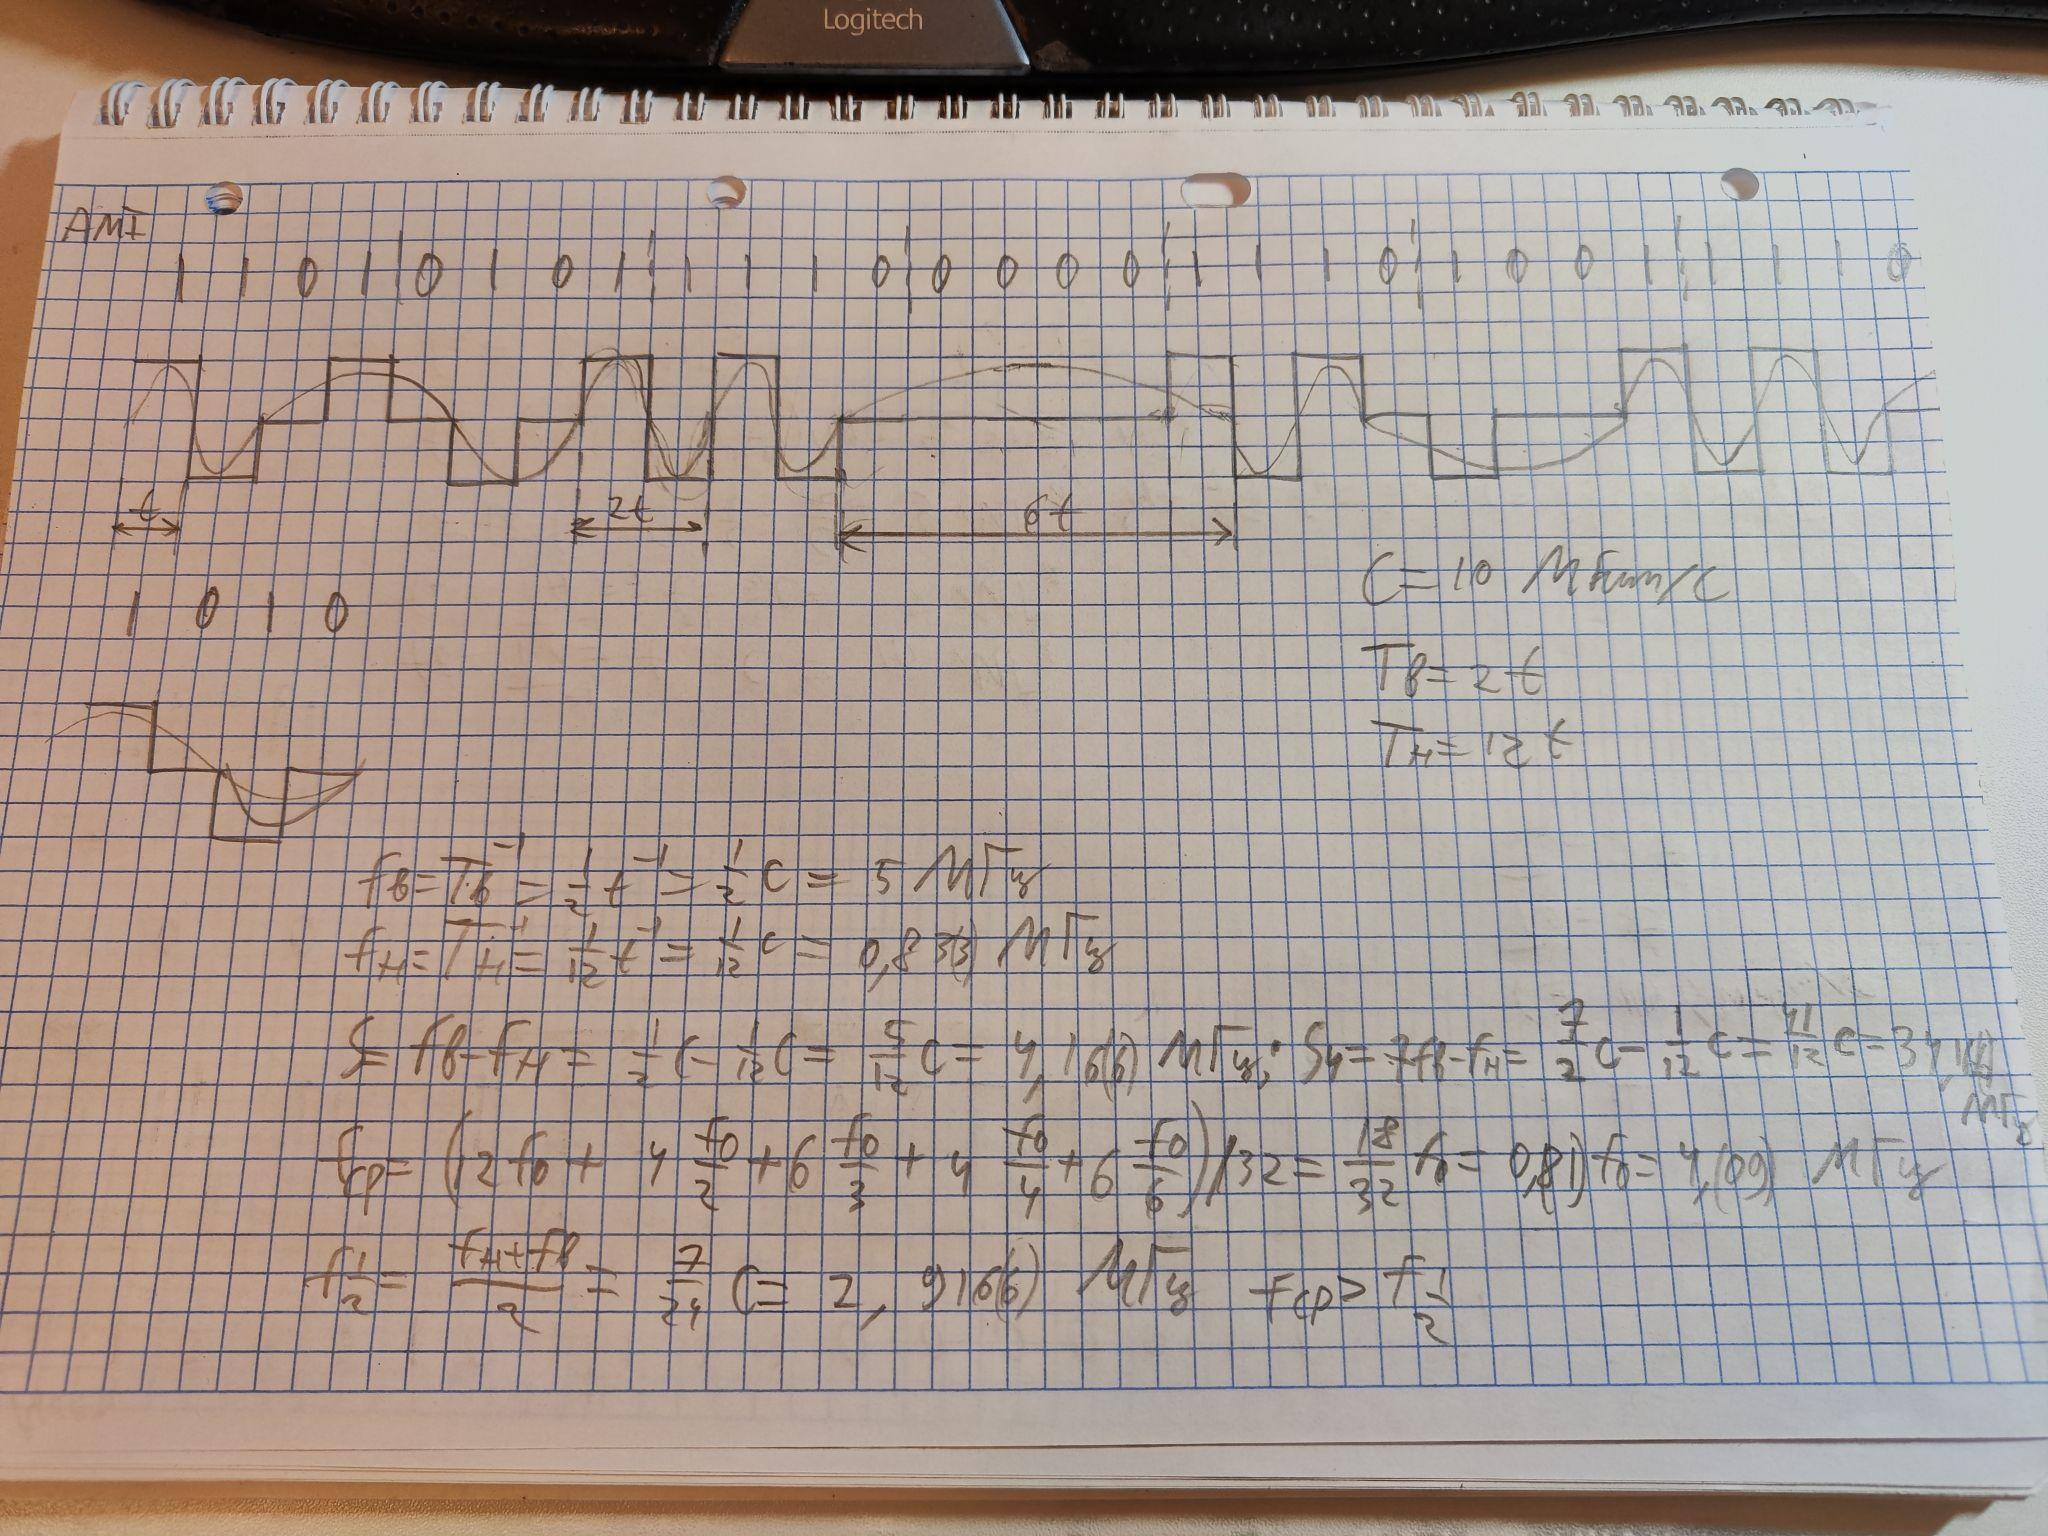 Logitech
AMI
1 1 0 1 0 1 0 1 1 1 1 0 0 0 0 0 1 1 1 0 1 0 0 1 1 1 1 0
t 2t 6t
C = 10 Мбит/с
1 0 1 0
Tв = 2t
Tн = 12t
fв = Tв⁻¹ = 1/2 t⁻¹ = 1/2 C = 5 МГц
fн = Tн⁻¹ = 1/12 t⁻¹ = 1/12 C = 0,8(33) МГц
S = fв - fн = 1/2 C - 1/12 C = 5/12 C = 4,16(6) МГц; S4 = 7fв - fн = 7/2 C - 1/12 C = 41/12 C = 34,1(6) МГц
fср = (12 f0 + 4 f0/2 + 6 f0/3 + 4 f0/4 + 6 f0/6)/32 = 18/32 f0 = 0,(81) f0 = 4,(09) МГц
f1/2 = (fн + fв)/2 = 7/24 C = 2,916(6) МГц fср > f1/2